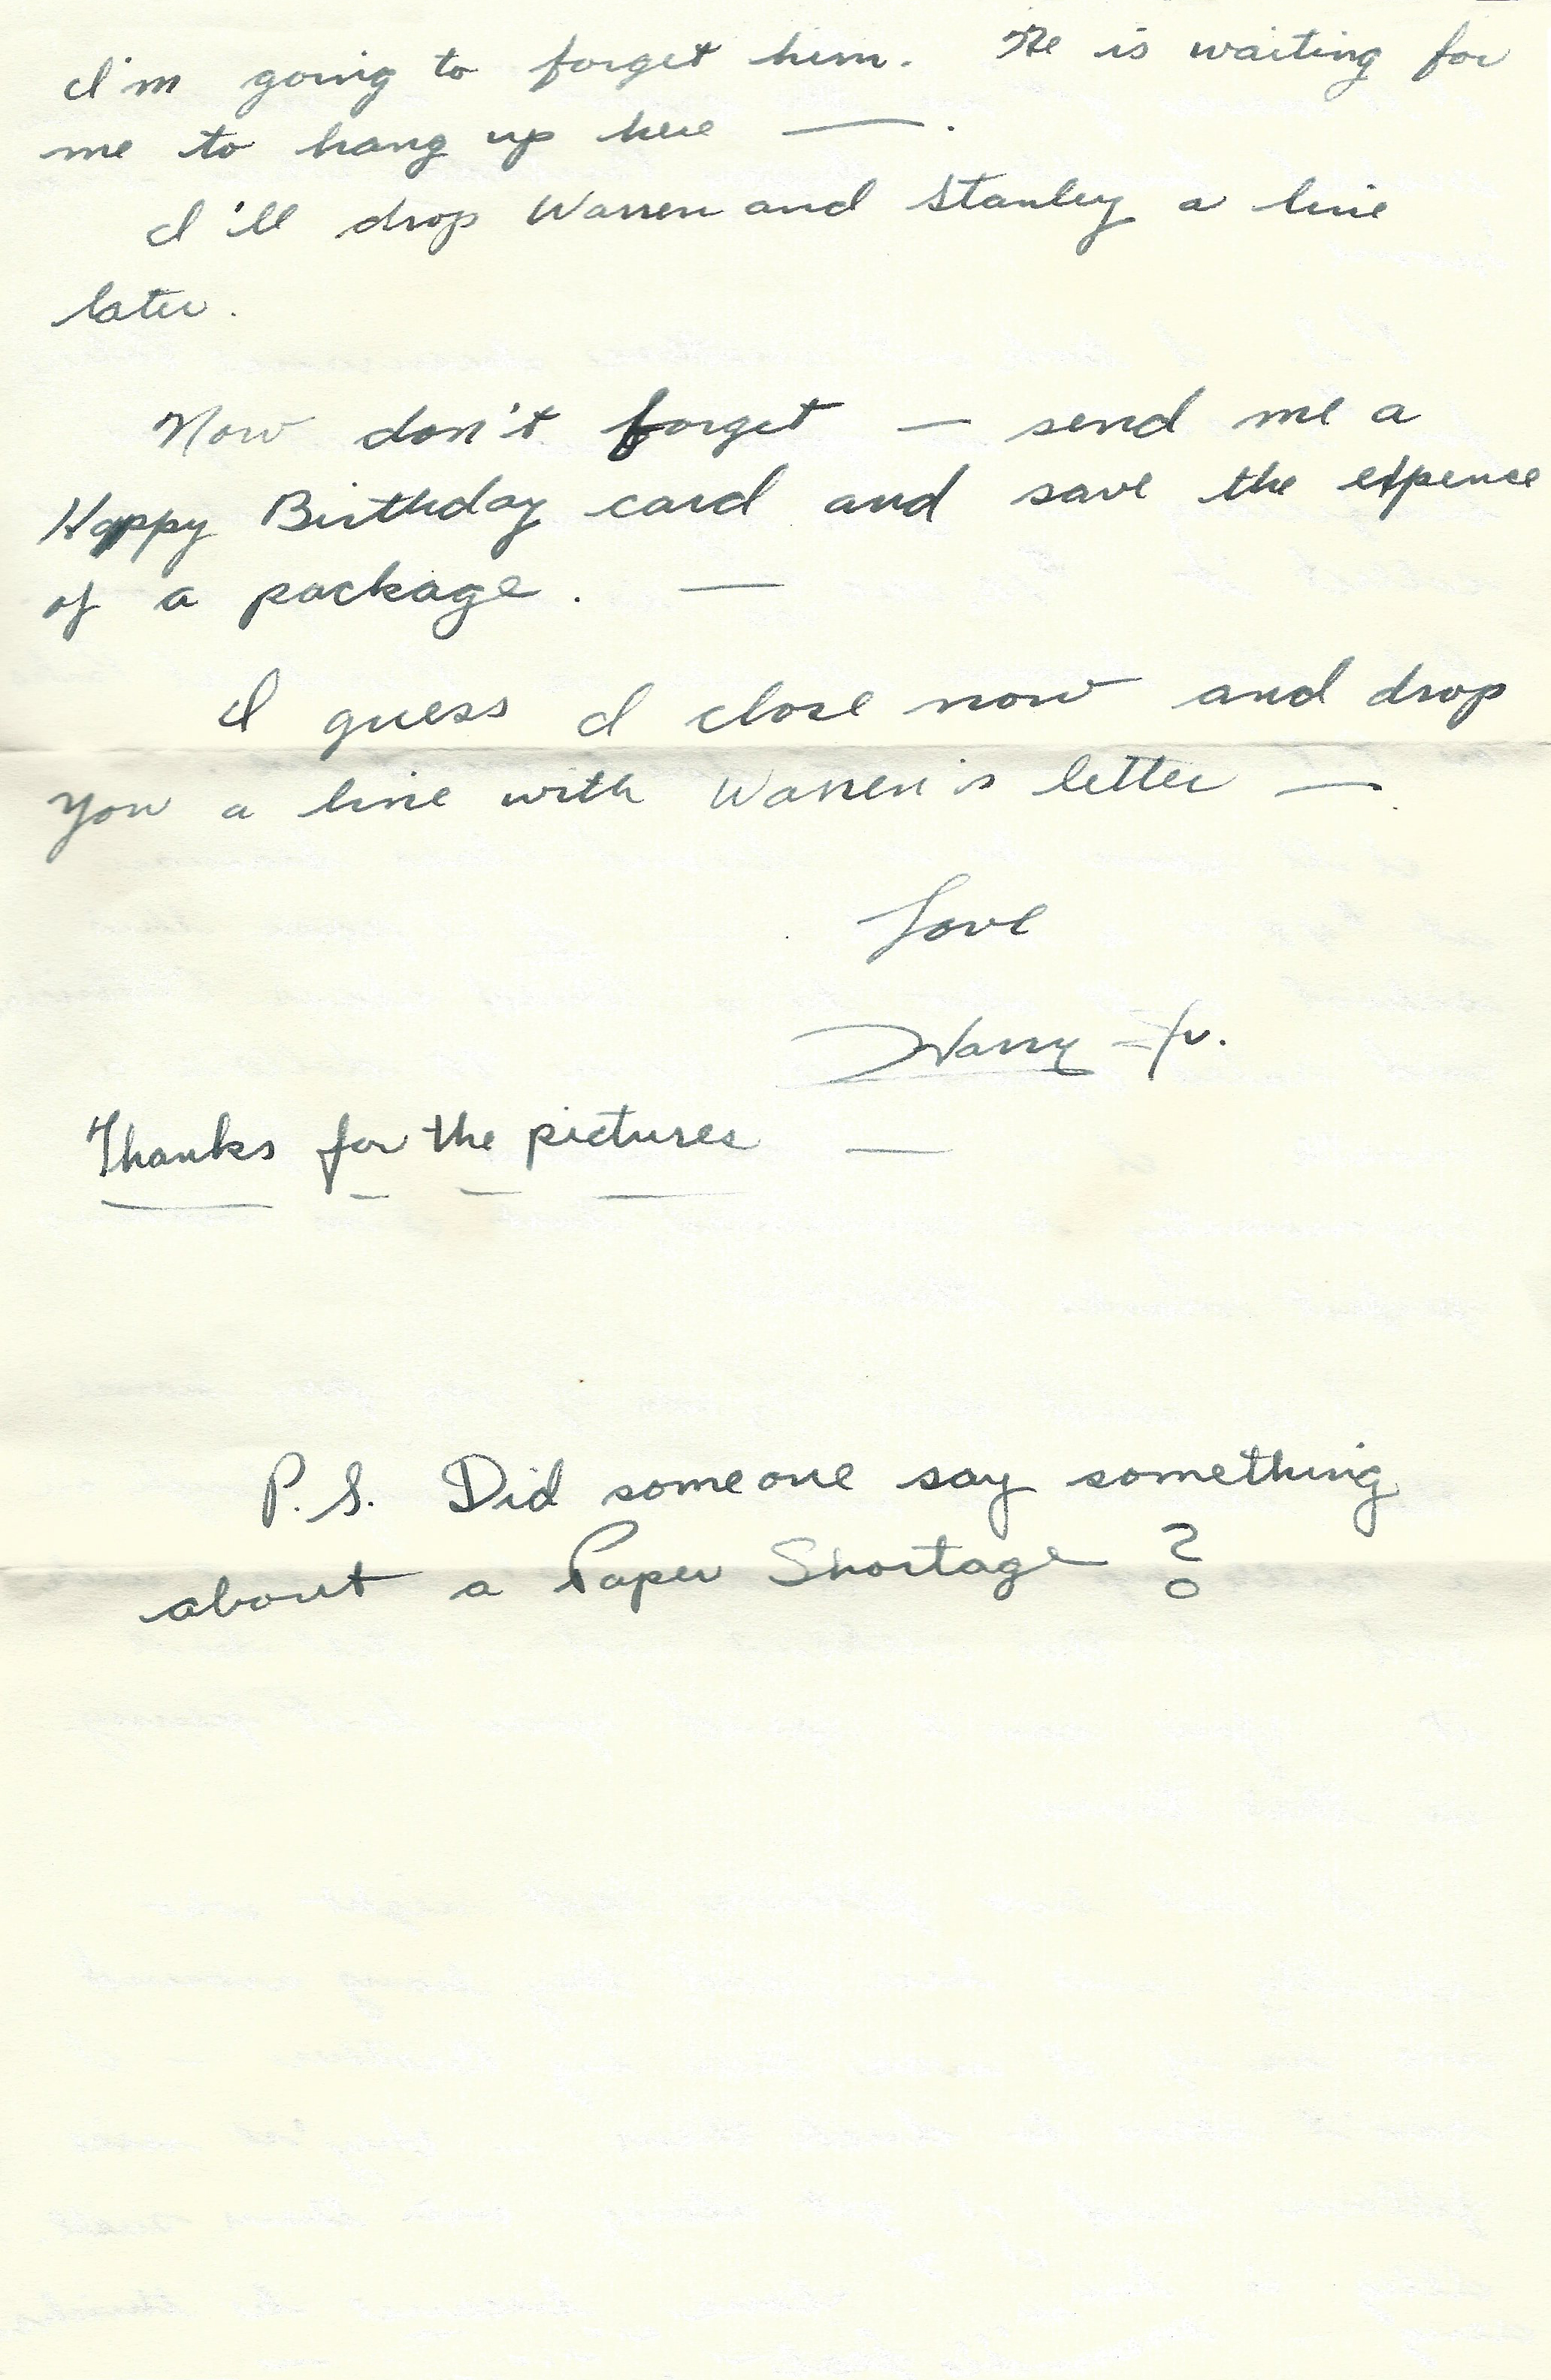 I'm going to forget him. He is waiting for
me to hang up here — .
I'll drop Warren and Stanley a line
later.
Now don't forget — send me a
Happy Birthday card and save the expence
of a package. —
I guess I close now and drop
you a line with Warren's letter — .
Love
Harry Jr.
Thanks for the pictures —
P.S. Did someone say something
about a Paper Shortage ?